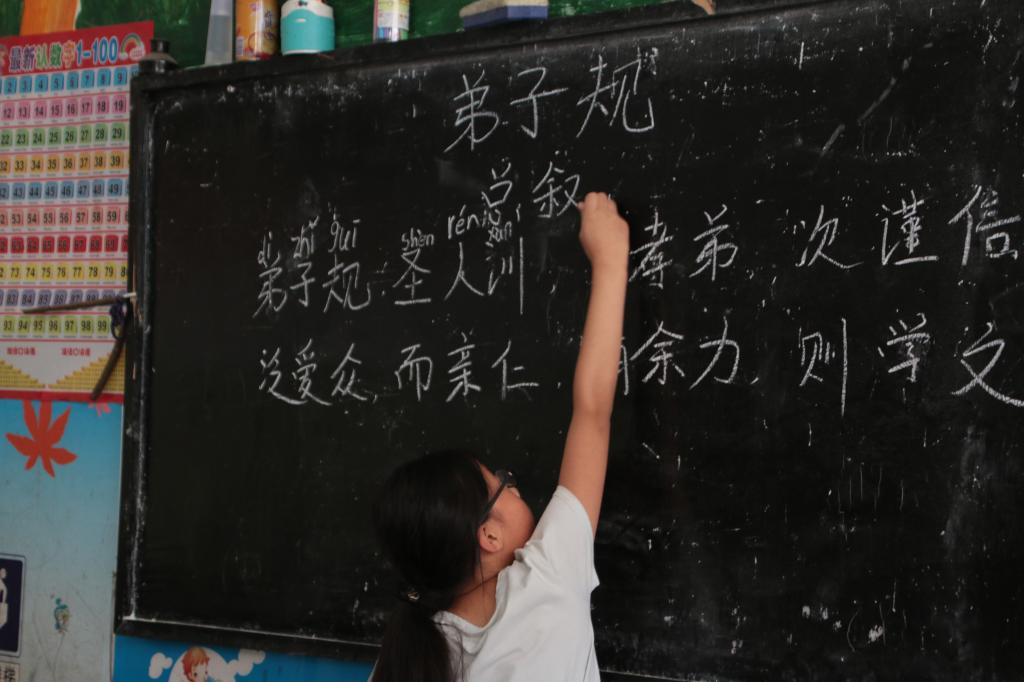 最新认数字1-100
2 3 4 5 6 7 8 9
12 13 14 15 16 17 18 19
22 23 24 25 26 27 28 29
32 33 34 35 36 37 38 39
42 43 44 45 46 47 48 49
52 53 54 55 56 57 58 59
62 63 64 65 66 67 68 69
72 73 74 75 76 77 78 79
93 94 95 96 97 98 99
弟子规
总叙
di zhǐ guī shèn rén xùn
弟子规.圣人训, 孝弟,次谨信
泛爱众,而亲仁,有余力,则学文